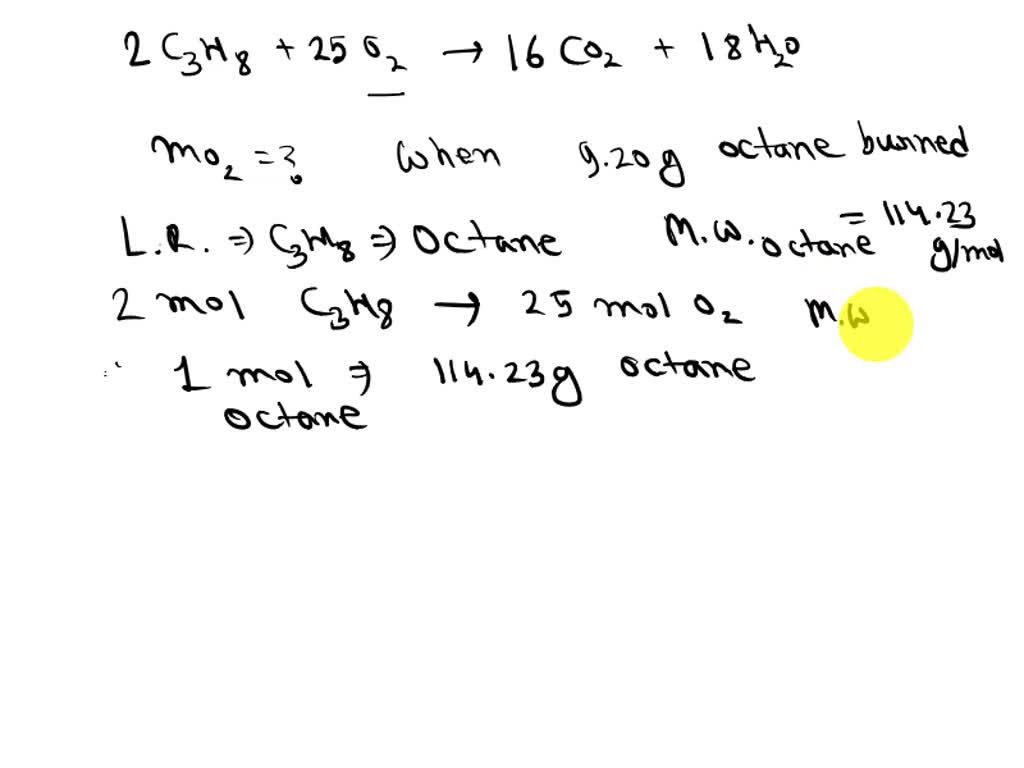 2 C3H8 + 25 O2 → 16 CO2 + 18 H2O
mO2 = ? when 9.20g octane burned
L.R. ⇒ C3H8 ⇒ Octane M.W. octane = 114.23 g/mol
2 mol C3H8 → 25 mol O2 M.W
∴ 1 mol octane ⇒ 114.23g octane